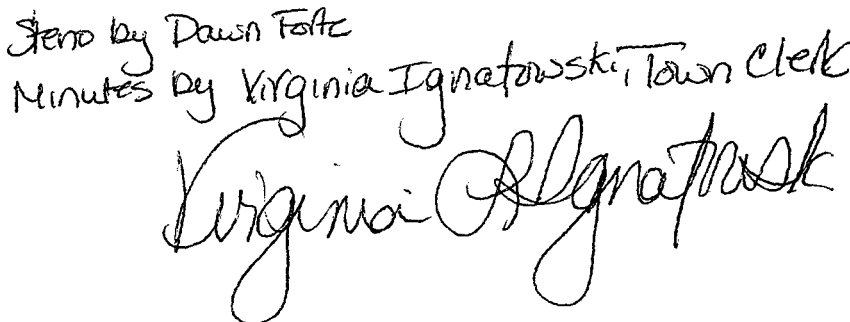 Steno by Dawn Forte
Minutes by Virginia Ignatowski, Town Clerk
Virginia A Ignatowski